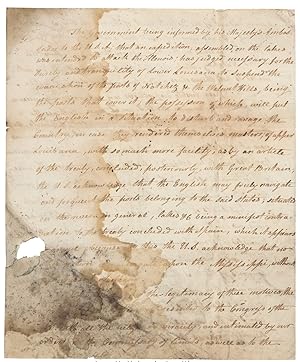 The Government being informed by his Majesty's Ambas
sador to the U.S.A. that an expedition, assembled on the lakes
was intended to attack the Illinois: has judged necessary for the
Security and tranquility of Lower Louisiana to suspend the
evacuation of the posts of Natchez & the Walnut Hills, being
the posts that cover it, the possession of which, will put
the English in a situation, to disturb and ravage the
Country, in case they rendered themselves masters, of upper
Louisiana, with so much more facility, as by an article
of the treaty, concluded, posteriorly, with Great Britain
the U.S. acknowledge that the English may freely navigate
and frequent the posts belonging to the said states, situated
on the rivers in general, lakes &c being a manifest contra-
diction to the treaty concluded with Spain, which it appears
because this the U.S. acknowledge that no
upon the Mississippi, without
The legitimacy of these motives, the
to the Congress of the
and intimated by our
orders the Commissary of limits as well as to the